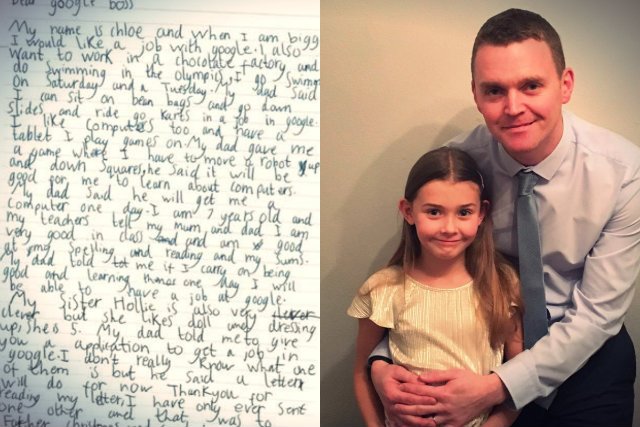 Dear google boss
My name is chloe and when I am bigg
I would like a job with google. I also
want to work in a chocolate factory and
do swimming in the olympics. I go swimm
on Saturday and a Tuesday. My dad said
I can sit on bean bags and go down
slides and ride go karts in a job in google.
I like computers too and have a
tablet I play games on. My dad gave me
a game where I have to move a robot up
and down squares, he said it will be
good for me to learn about computers.
My dad said he will get me a
computer one day. I am 7 years old and
my teachers tell my mum and dad I am
very good in class and am good
at my spelling and reading and my sums.
My dad told me if I carry on being
good and learning then one day I will
be able to have a job at google.
My sister Hollie is also very
clever but she likes doll and dressing
up, She is 5. My dad told me to give
you a application to get a job in
google. I don't really know what one
of them is but he said a letter
will do for now. Thankyou for
reading my letter, I have only ever sent
one other and that was to
Father christmas